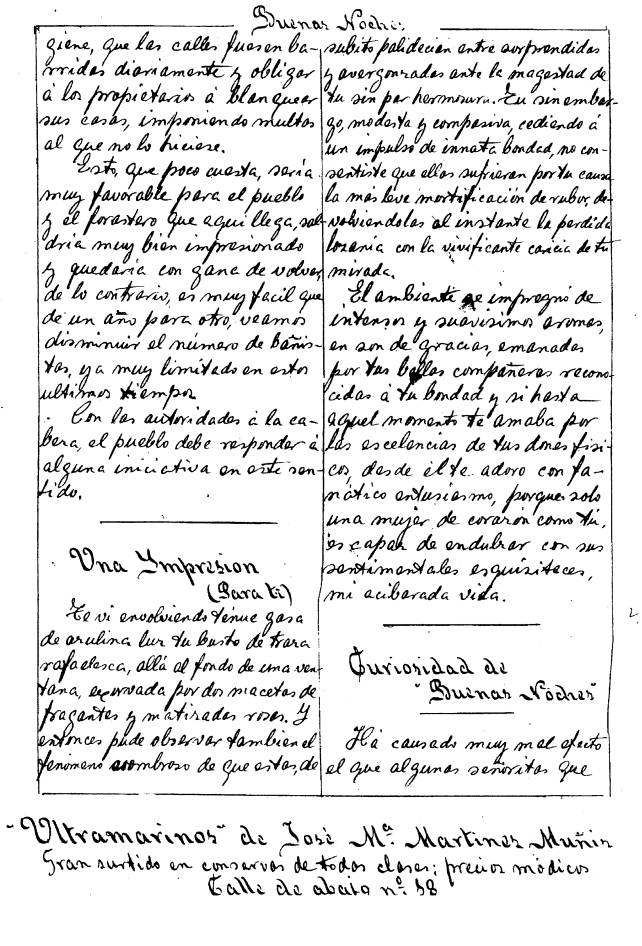 Buenas Noches
giene, que las calles fuesen ba-
rridas diariamente y obligar
á los propietarios á blanquear
sus casas, imponiendo multas
al que no lo hiciese.
Esto, que poco cuesta, sería
muy favorable para el pueblo
y el forastero que aquí llega, sal-
dria muy bien impresionado
y quedaria con gana de volver,
de lo contrario, es muy facil que
de un año para otro, veamos
disminuir el número de bañis-
tas, ya muy limitado en estos
ultimos tiempos
Con las autoridades á la ca-
beza, el pueblo debe responder á
alguna iniciativa en este sen-
tido.
Una Impresion
(Para ti)
Te vi envolviendo ténue gasa
de azulina luz tu busto de traza
rafaelesca, allá al fondo de una ven-
tana, exornada por dos macetas de
fragantes y matizadas rosas. Y
entonces pude observar tambien el
fenómeno asombroso de que estas, de
subito palidecian entre sorprendidas
y avergonzadas ante la magestad de
tu sin par hermosura. Tu sin embar-
go, modesta y compasiva, cediendo á
un impulso de innata bondad, no con-
sentiste que ellas sufrieran por tu causa
la más leve mortificación de rubor, de-
volviendolas al instante la perdida
lozania con la vivificante caricia de tu
mirada.
El ambiente se impregnó de
intensos y suavisimos aromas,
en son de gracias, emanadas
por tus bellas compañeras recono-
cidas á tu bondad y si hasta
aquel momento te amaba por
las escelencias de tus dones fisi-
cos, desde él te adoro con fa-
nático entusiasmo, porque solo
una mujer de corazón como tú,
es capaz de endulzar con sus
sentimentales esquisiteces,
mi acibarada vida.
Curiosidad de
"Buenas Noches"
Há causado muy mal efecto
el que algunas señoritas que
"Ultramarinos" de José Mª Martinez Muñiz
Gran surtido en conservas de todas clases; precios módicos
Calle de abajo nº 38